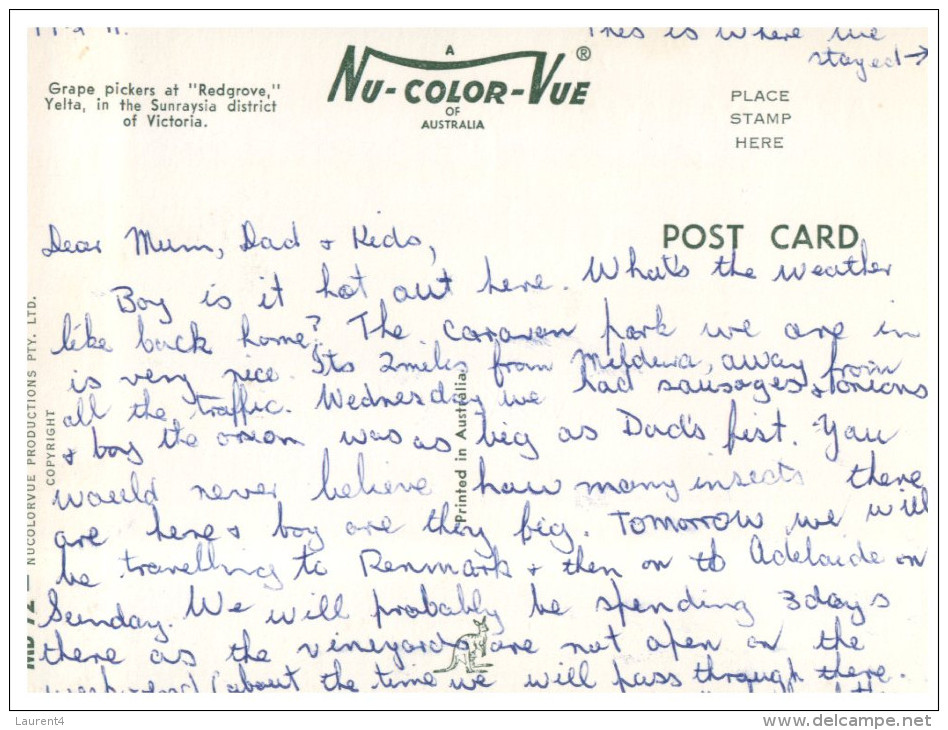 This is where we
stayed→
A
NU-COLOR-VUE ®
OF
AUSTRALIA
Grape pickers at "Redgrove,"
Yelta, in the Sunraysia district
of Victoria.
PLACE
STAMP
HERE
POST CARD
Dear Mum, Dad & Kids,
Boy is it hot out here. What's the weather
like back home? The caravan park we are in
is very nice. Its 2miles from Mildura, away from
all the traffic. Wednesday we had sausages & onions
& boy the onion was as big as Dad's fist. You
would never believe how many insects there
are here & boy are they big. Tomorrow we will
be travelling to Renmark & then on to Adelaide on
Sunday. We will probably be spending 3days
there as the vineyards are not open on the
weekend (about the time we will pass through there.
NUCOLORVUE PRODUCTIONS PTY. LTD.
COPYRIGHT
Printed in Australia
Laurent4
www.delcampe.net